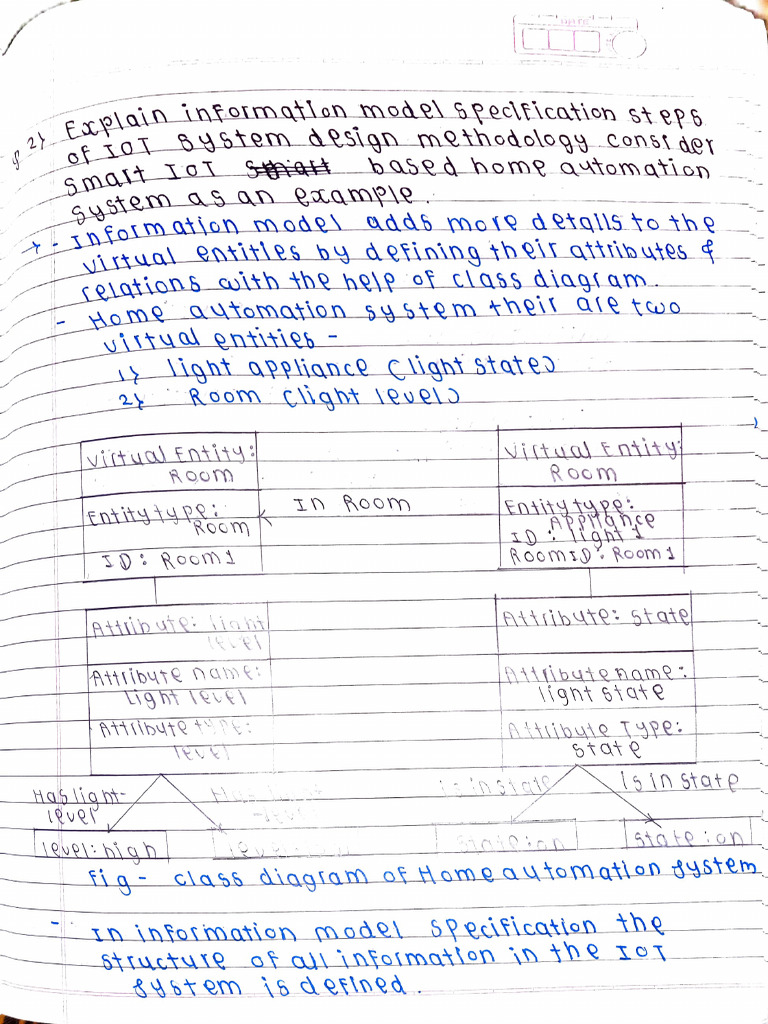 2} Explain information model specification steps
of IOT system design methodology consider
smart IOT based home automation
system as an example.
→ - Information model adds more details to the
virtual entities by defining their attributes &
relations with the help of class diagram.
- Home automation system their are two
virtual entities -
1} light appliance (light state)
2} Room (light level)
Virtual Entity:
Room
Virtual Entity:
Room
Entity type:
Room
ID: Room1
In Room
Entity type:
Appliance
ID: light 1
RoomID: Room1
Attribute: light
level
Attribute name:
Light level
Attribute type:
level
Attribute: state
Attribute name:
light state
Attribute Type:
state
Has light-
level
Has light
-level
is in state
is in state
level: high
level:
state: on
state: on
fig - class diagram of Home automation system
- In information model specification the
structure of all information in the IOT
system is defined.